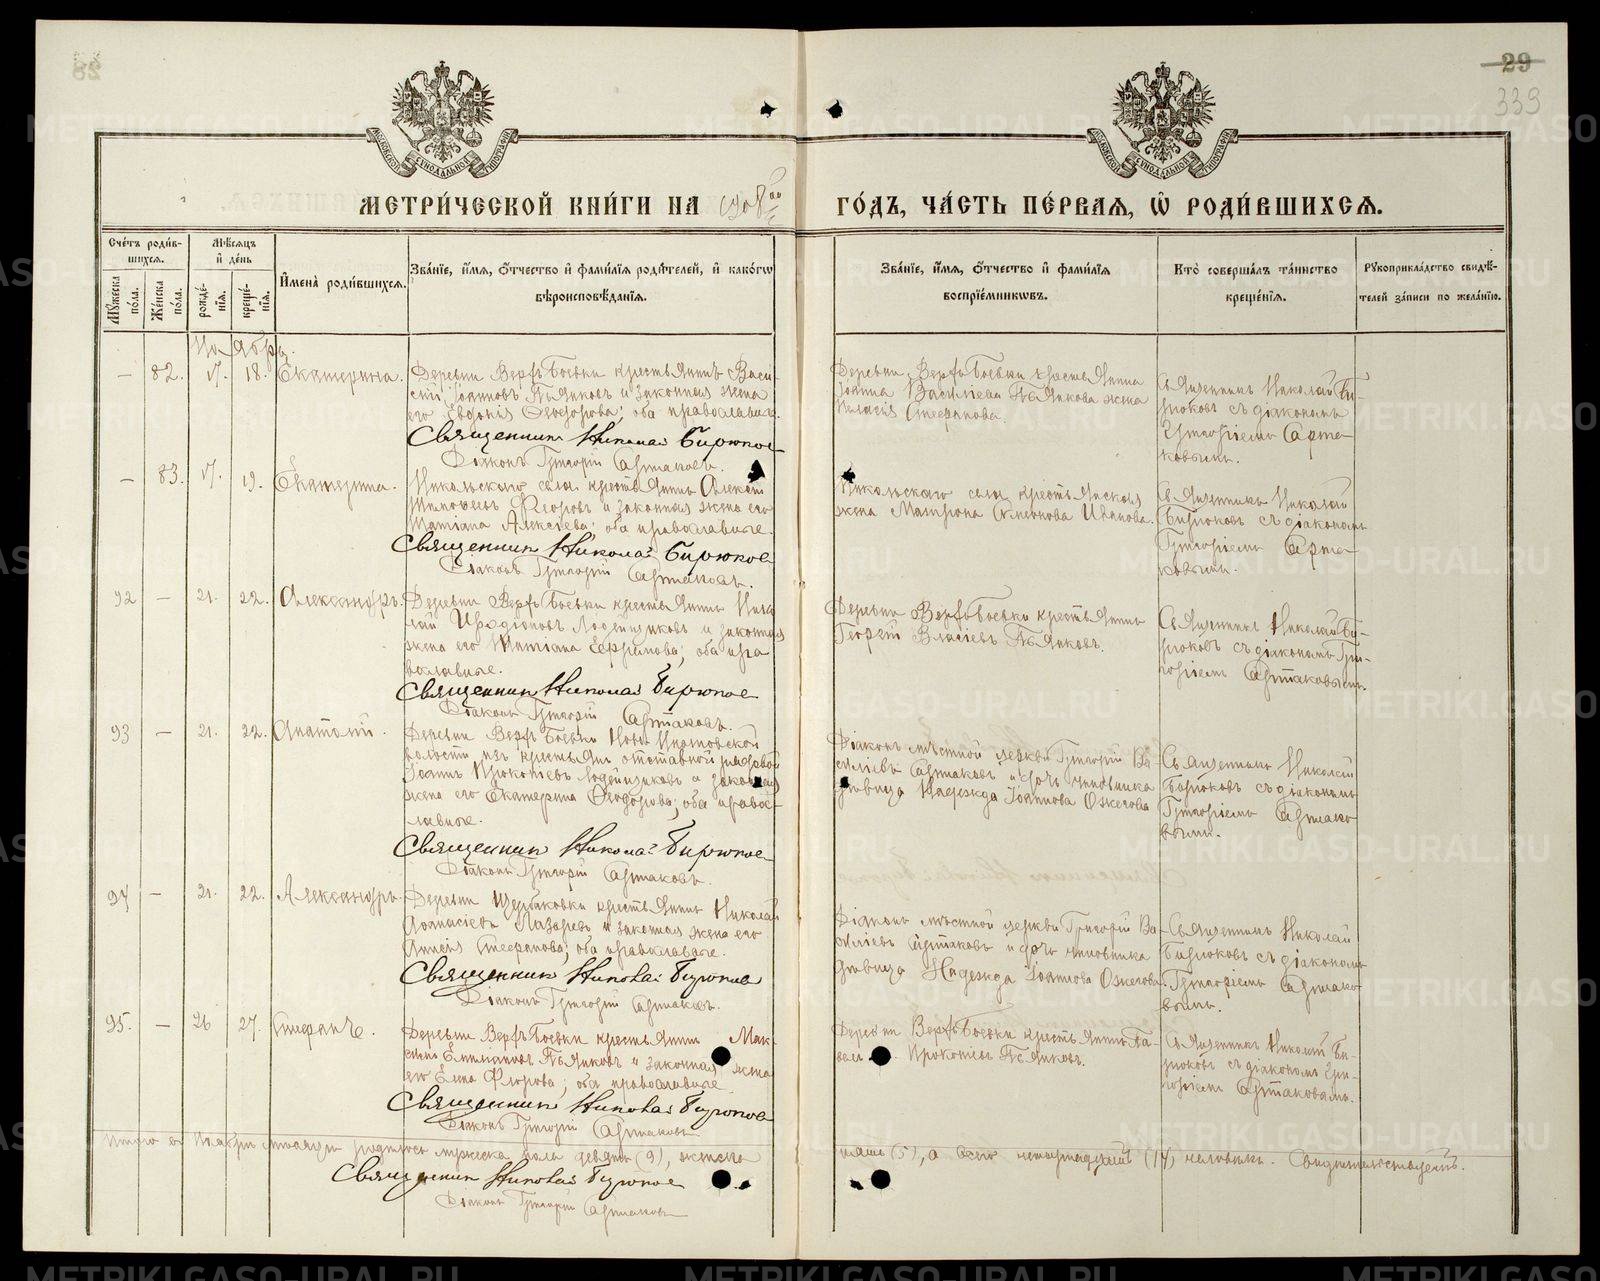 28
29
339
МОСКОВСКОЙ СѴНОДАЛЬНОЙ ТИПОГРАФІИ
МОСКОВСКОЙ СѴНОДАЛЬНОЙ ТИПОГРАФІИ
МЕТРИ́ЧЕСКОЙ КНИ́ГИ НА
ГО́ДЪ, ЧА́СТЬ ПЕ́РВАЯ, Ѽ РОДИ́ВШИХСЯ.
Сче́тъ роди́в-
шихся.
Мѣ́сяцъ
и҆ де́нь
Мꙋ́жеска по́ла.
Же́нска по́ла.
рожде́-
нїя.
креще́-
нїя.
И҆мена̀ роди́вшихся.
Зва́нїе, и҆́мя, ѻ҆́тчество и҆ фами́лїя роди́телей, и҆ како́гѡ
вѣроисповѣ́данїя.
Зва́нїе, и҆́мя, ѻ҆́тчество и҆ фами́лїя
воспрїе́мникѡвъ.
Кто̀ соверша́лъ та́инство
креще́нїя.
Рꙋкоприкла́дство свидѣ́-
телей за́писи по жела́нїю.
Ноябрь.
— 82. 17. 18. Екатерина.
Деревни Верхъ Боевки крестьянинъ Васи-
лій Іоанновъ Пьянковъ и законная жена
его Евдокія Ѳеодорова; оба православн.
Священникъ Николай Бирюковъ
Діаконъ Григорій Арта­ковъ.
Деревни Верхъ Боевки крестьянина
Іоанна Василіева Пьянкова жена
Стефанова.
Священникъ Николай Би-
рюковъ съ діакономъ
Григоріемъ Арта-
ковымъ.
— 83. 17. 19. Екатерина.
Никольскаго села крестьянинъ Алексѣй
Тимоѳеевъ Ѳеоровъ и законная жена его
Татіана Алексѣева; оба православные.
Священникъ Николай Бирюковъ
Діаконъ Григорій Артаковъ.
Никольскаго села крестьянская
жена Матрона Симеонова Иванова.
Священникъ Николай
Бирюковъ съ діакономъ
Григоріемъ Арта-
ковымъ.
92 — 21. 22. Александръ.
Деревни Верхъ Боевки крестьянинъ Нико-
лай Иродіоновъ Лодейщиковъ и законная
жена его Татіана Ефремова; оба пра
вославные.
Священникъ Николай Бирюковъ
Діаконъ Григорій Артаковъ.
Деревни Верхъ Боевки крестьянинъ
Георгій Власіевъ Пьянковъ.
Священникъ Николай Би-
рюковъ съ діакономъ Гри-
горіемъ Артаковымъ.
93 — 21. 22. Анатолій.
Деревни Верхъ Боевки Ново Ипатовской
волости изъ крестьянъ отставной рядовой
Іоаннъ Прокопіевъ Лодейщиковъ и законная
жена его Екатерина Ѳеодорова; оба право-
славные.
Священникъ Николай Бирюковъ
Діаконъ Григорій Артаковъ.
Діаконъ мѣстной церкви Григорій Ва-
силіевъ Артаковъ и дочь чиновника
дѣвица Надежда Іоаннова Ожегова
Священникъ Николай
Бирюковъ съ діакономъ
Григоріемъ Артако
вымъ.
94 — 21. 22. Александръ.
Деревни Щербаковки крестьянинъ Николай
Аѳанасіевъ Лазаревъ и законная жена его
Стефанова; оба православные.
Священникъ Николай Бирюковъ
Діаконъ Григорій Артаковъ.
Діаконъ мѣстной церкви Григорій Ва-
силіевъ Артаковъ и дочь чиновника
дѣвица Надежда Іоаннова Ожегова.
Священникъ Николай
Бирюковъ съ діакономъ
Григоріемъ Артако
вымъ.
95. — 26 27. Стефанъ.
Деревни Верхъ Боевки крестьянинъ Мак-
симъ Пьянковъ и законная жена
его Елена Флорова; оба православные
Священникъ Николай Бирюковъ
Діаконъ Григорій Артаковъ
Деревни Верхъ Боевки крестьянинъ Па-
велъ Прокопіевъ Пьянковъ.
Священникъ Николай Би-
рюковъ съ діакономъ Гри-
горіемъ Артаковымъ.
Итого въ Ноябрѣ мѣсяцѣ родилось мужеска пола девять (9), женска
пять (5), а всего четырнадцать (14) человѣкъ. Свидѣтельствуемъ.
Священникъ Николай Бирюковъ
Діаконъ Григорій Артаковъ
METRIKI.GASO-URAL.RU